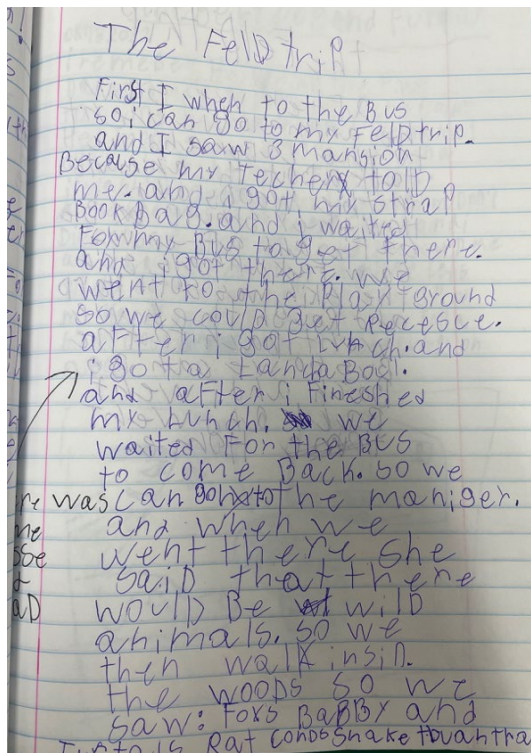 The FelD trip
First I when to the Bus
so i can go to my FelD trip.
and I saw 3 mansion
Because my Techer tolD
me. and i got my strap
BookBag. and i waited
For my Bus to get there.
and i got there. we
went to the Play ground
so we coulD get Recesce.
after i got Lunch. and
i got a LandaBosl.
and after i Finished
my Lunch. we
waited For the BUS
to come Back. so we
can go to the maniger.
and when we
went there she
saiD that there
woulD Be wilD
animals. so we
then walk insiD.
the wooDs so we
saw: Foxs BaBBy and
Turtols Rat conDs snake
re was
me
sse
aD